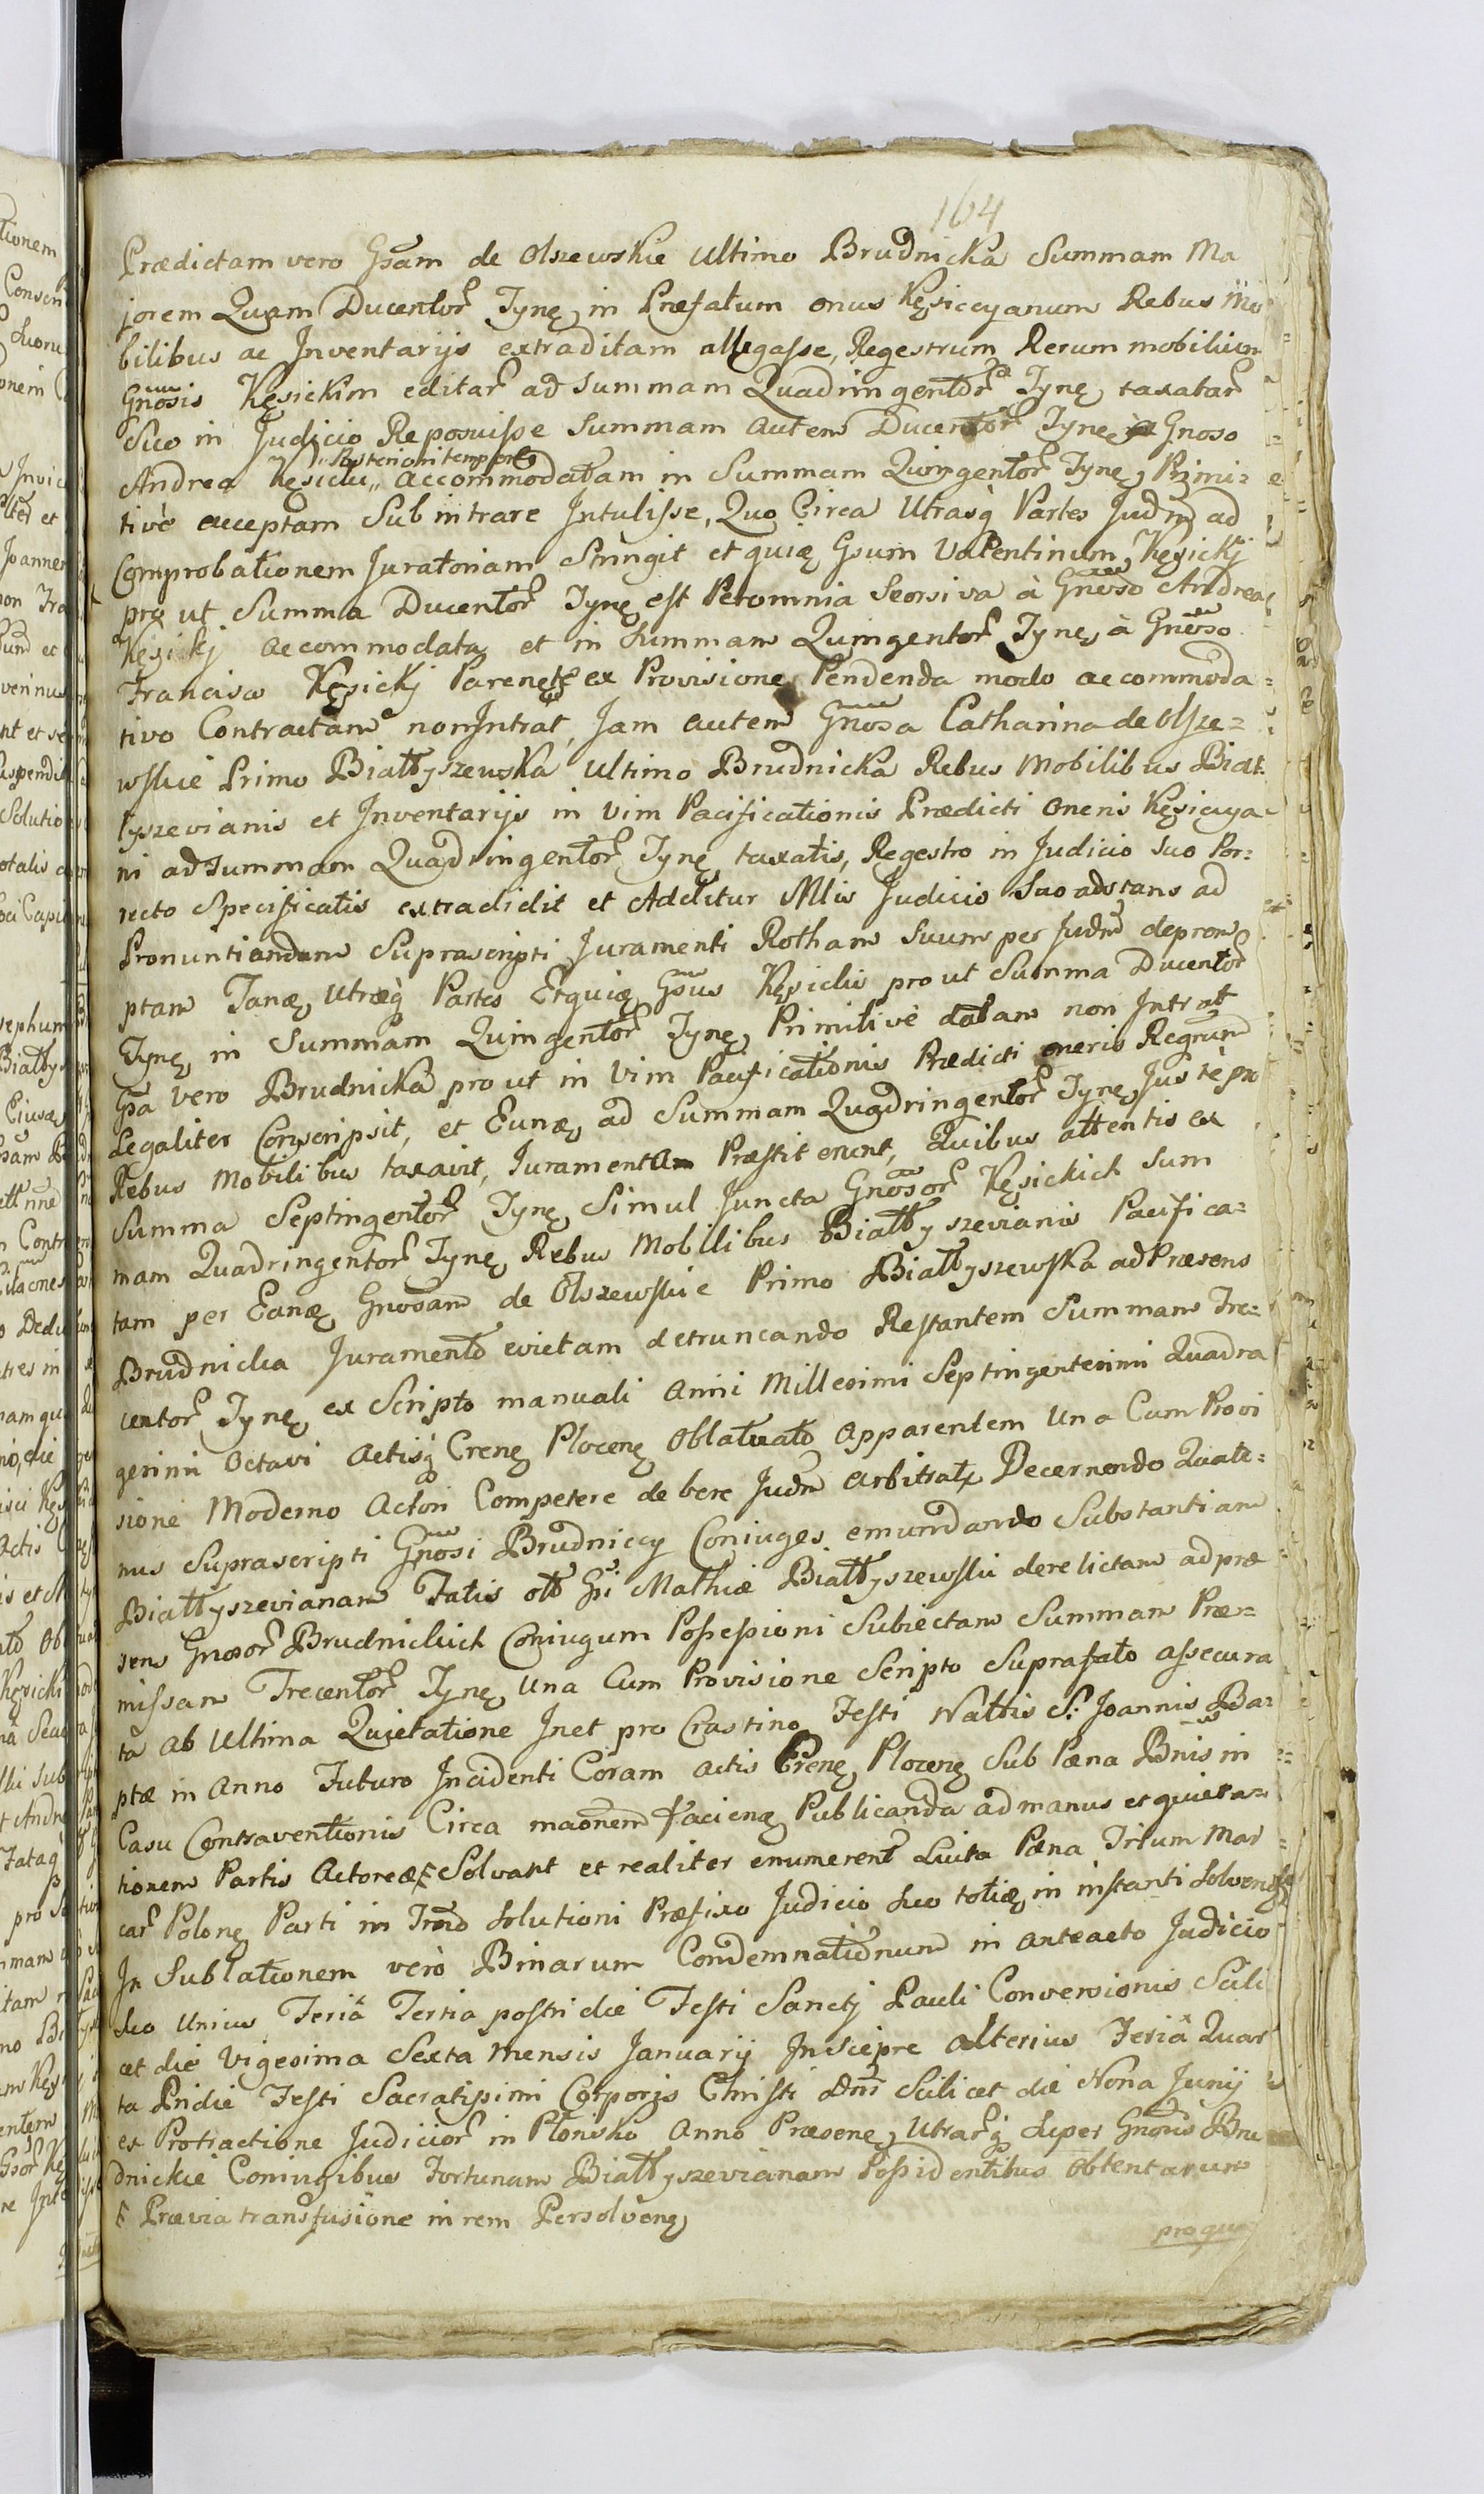 164
Prædictam vero Gsam de Olszewskie Ultimo Brudnicka Summam Ma
jorem Quam Ducentor Tyne in Præfatum onus Kęsiccyanum Rebus Mo
bilibus ac Inventarijs extraditam allegasse, Regestrum Rerum mobilium
Gnosis Kęsickim editar ad Summam Quadringentor Tyne taxatar
Suo in Judicio Reposuisse Summam autem Ducentor Tyne a Gnoso
Posteriori tempore
Andrea Kęsicki accommodatam in Summam Quingentor Tyne Primi=
tivè acceptam Subintrare Intulisse, Quo Circa Utrasq Partes Judm ad
Comprobationem Juratoriam Stringit et quia Gsum Valentinum Kęsickj
pro ut Summa Ducentor Tyne est Peromnia Seorsiva à Gnoso Andrea
Kęsickj accommodata et in Summam Quingentor Tyne à Gnoso
Francisco Kęsickj Parente ex Provisione Pendenda modo accommoda=
tivo Contractam non Intrat, Jam autem Gnosa Catharina de Olsze=
wskie Primo Białłyszewska Ultimo Brudnicka Rebus Mobilibus Biał
łyszevianis et Inventarijs in Vim Pacificationis Prædicti Oneris Kęsiccya
ni ad Summam Quadringentor Tyne taxatis, Regestro in Judicio Suo Por=
recto Specificatis extradidit et Adcitur Mlis Judicio Suo adstans ad
Pronuntiandum Suprascripti Juramenti Rotham Suum per Judm deprom
ptam Tanq Utræq Partes Et quia Gsus Kęsicki pro ut Summa Ducentor
Tyne in Summam Quingentor Tyne Primitivè datam non Intrat
Gsa vero Brudnicka pro ut in Vim Pacificationis Prædicti oneris Regrum
Legaliter Conscripsit, et Eunq ad Summam Quadringentor Tyne Justè pro
Rebus Mobilibus taxavit, Juramenta Præstiterunt, Quibus attentis ex
Summa Septingentor Tyne Simul Juncta Gnosor Kęsickich Sum
mam Quadringentor Tyne Rebus Mobilibus Białłyszevianis Pacifica=
tam per Eanq Gnosam de Olszewskie Primo Białłyszewska ad Præsens
Brudnicka Juramento evictam detruncando Restantem Summam Tre=
centor Tyne ex Scripto manuali Anni Millesimi Septingentesimi Quadra
gesimi Octavi Actisq Crene Plocene Oblatuato Apparentem Una Cum Provi
sione Moderno Actori Competere debere Judm arbitratr Decernendo Quate=
nus Suprascripti Gnosi Brudniccy Coniuges emundando Substantiam
Białłyszevianam Fatis olb Gsi Mathiæ Białłyszewski derelictam ad præ
sens Gnosor Brudnickich Coniugum Possessioni Subiectam Summam Præ=
missam Trecentor Tyne Una Cum Provisione Scripto Suprafato assecura
ta ab Ultima Quietatione Inet pro Crastino Festi Nattis S: Joannis Ba=
ptæ in Anno Futuro Incidenti Coram actis Crene Plocene Sub Pæna Bnis in
Casu Contraventionis Circa maonem faciene Publicanda ad manus et quieta=
tionem Partis Actoreæ Solvant et realiter enumerent Luita Pæna Trium Mar
car Polone Parti in Trmo Solutioni Præfixo Judicio Suo totiq in instanti Solvend
In Sublationem verò Binarum Condemnationum in anteacto Judicio
Suo Unius Feriâ Tertia postridie Festi Sanctj Pauli Conversionis Scili
cet die Vigesima Sexta Mensis Januarij Inscipre alterius Feriâ Quar
ta Pridie Festi Sacratissimi Corporis Christi Dni Scilicet die Nona Junij
ex Protractione Judicior in Płonsko Anno Præsene Utrarq Super Gnosis Bru
dnickie Coniugibus Fortunam Białłyszevianam Possidentibus Obtentarum
Prævia transfusione in rem Persolvene
pro qua